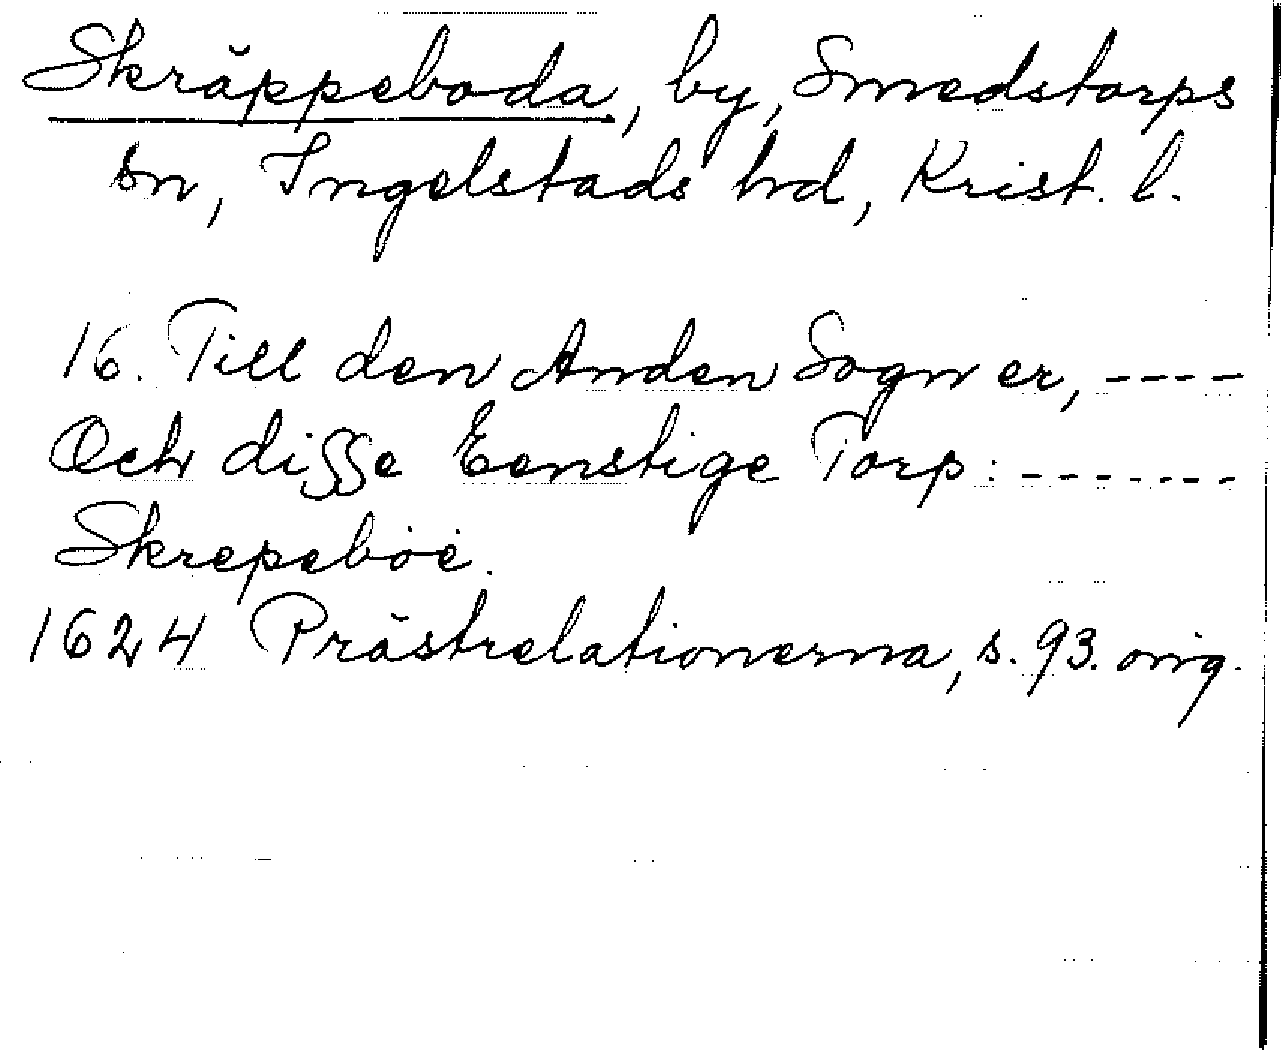 Skräppeboda, by, Smedstorps
sn, Ingelstads hd, Krist. l.
16. Till den Anden Sogn er, ----
Och disse Eenstige Torp: -------
Skrepeböe.
1624 Prästrelationerna, s. 93. orig.